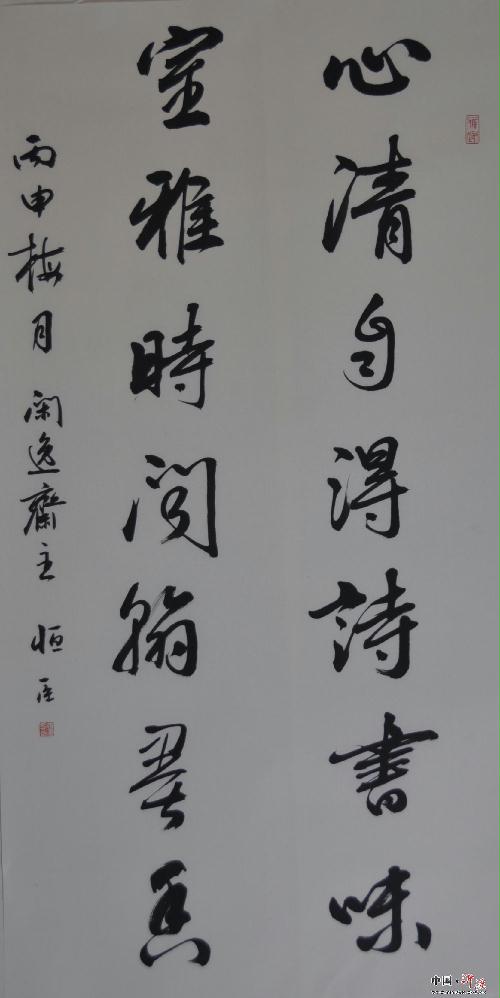 心清自得詩書味
室雅時聞翰墨香
丙申梅月 闲逸齋主 恒
中国